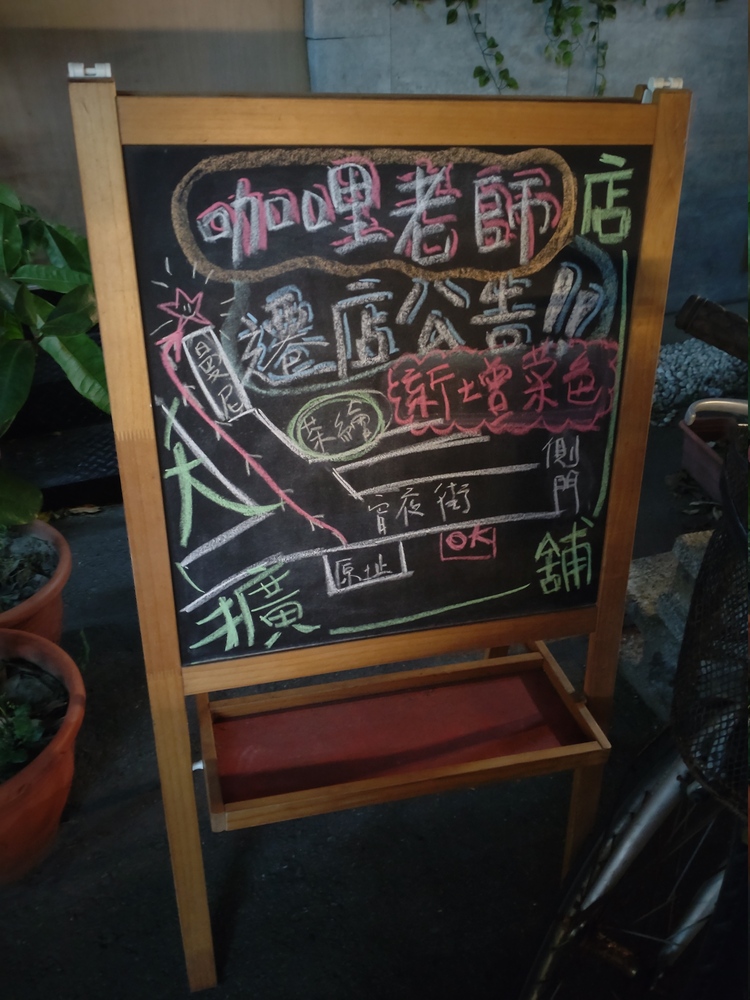 咖哩老師
遷店公告!!
新增菜色
曼尼
茶繪
側門
宵夜街
OK
原址
擴大店舖